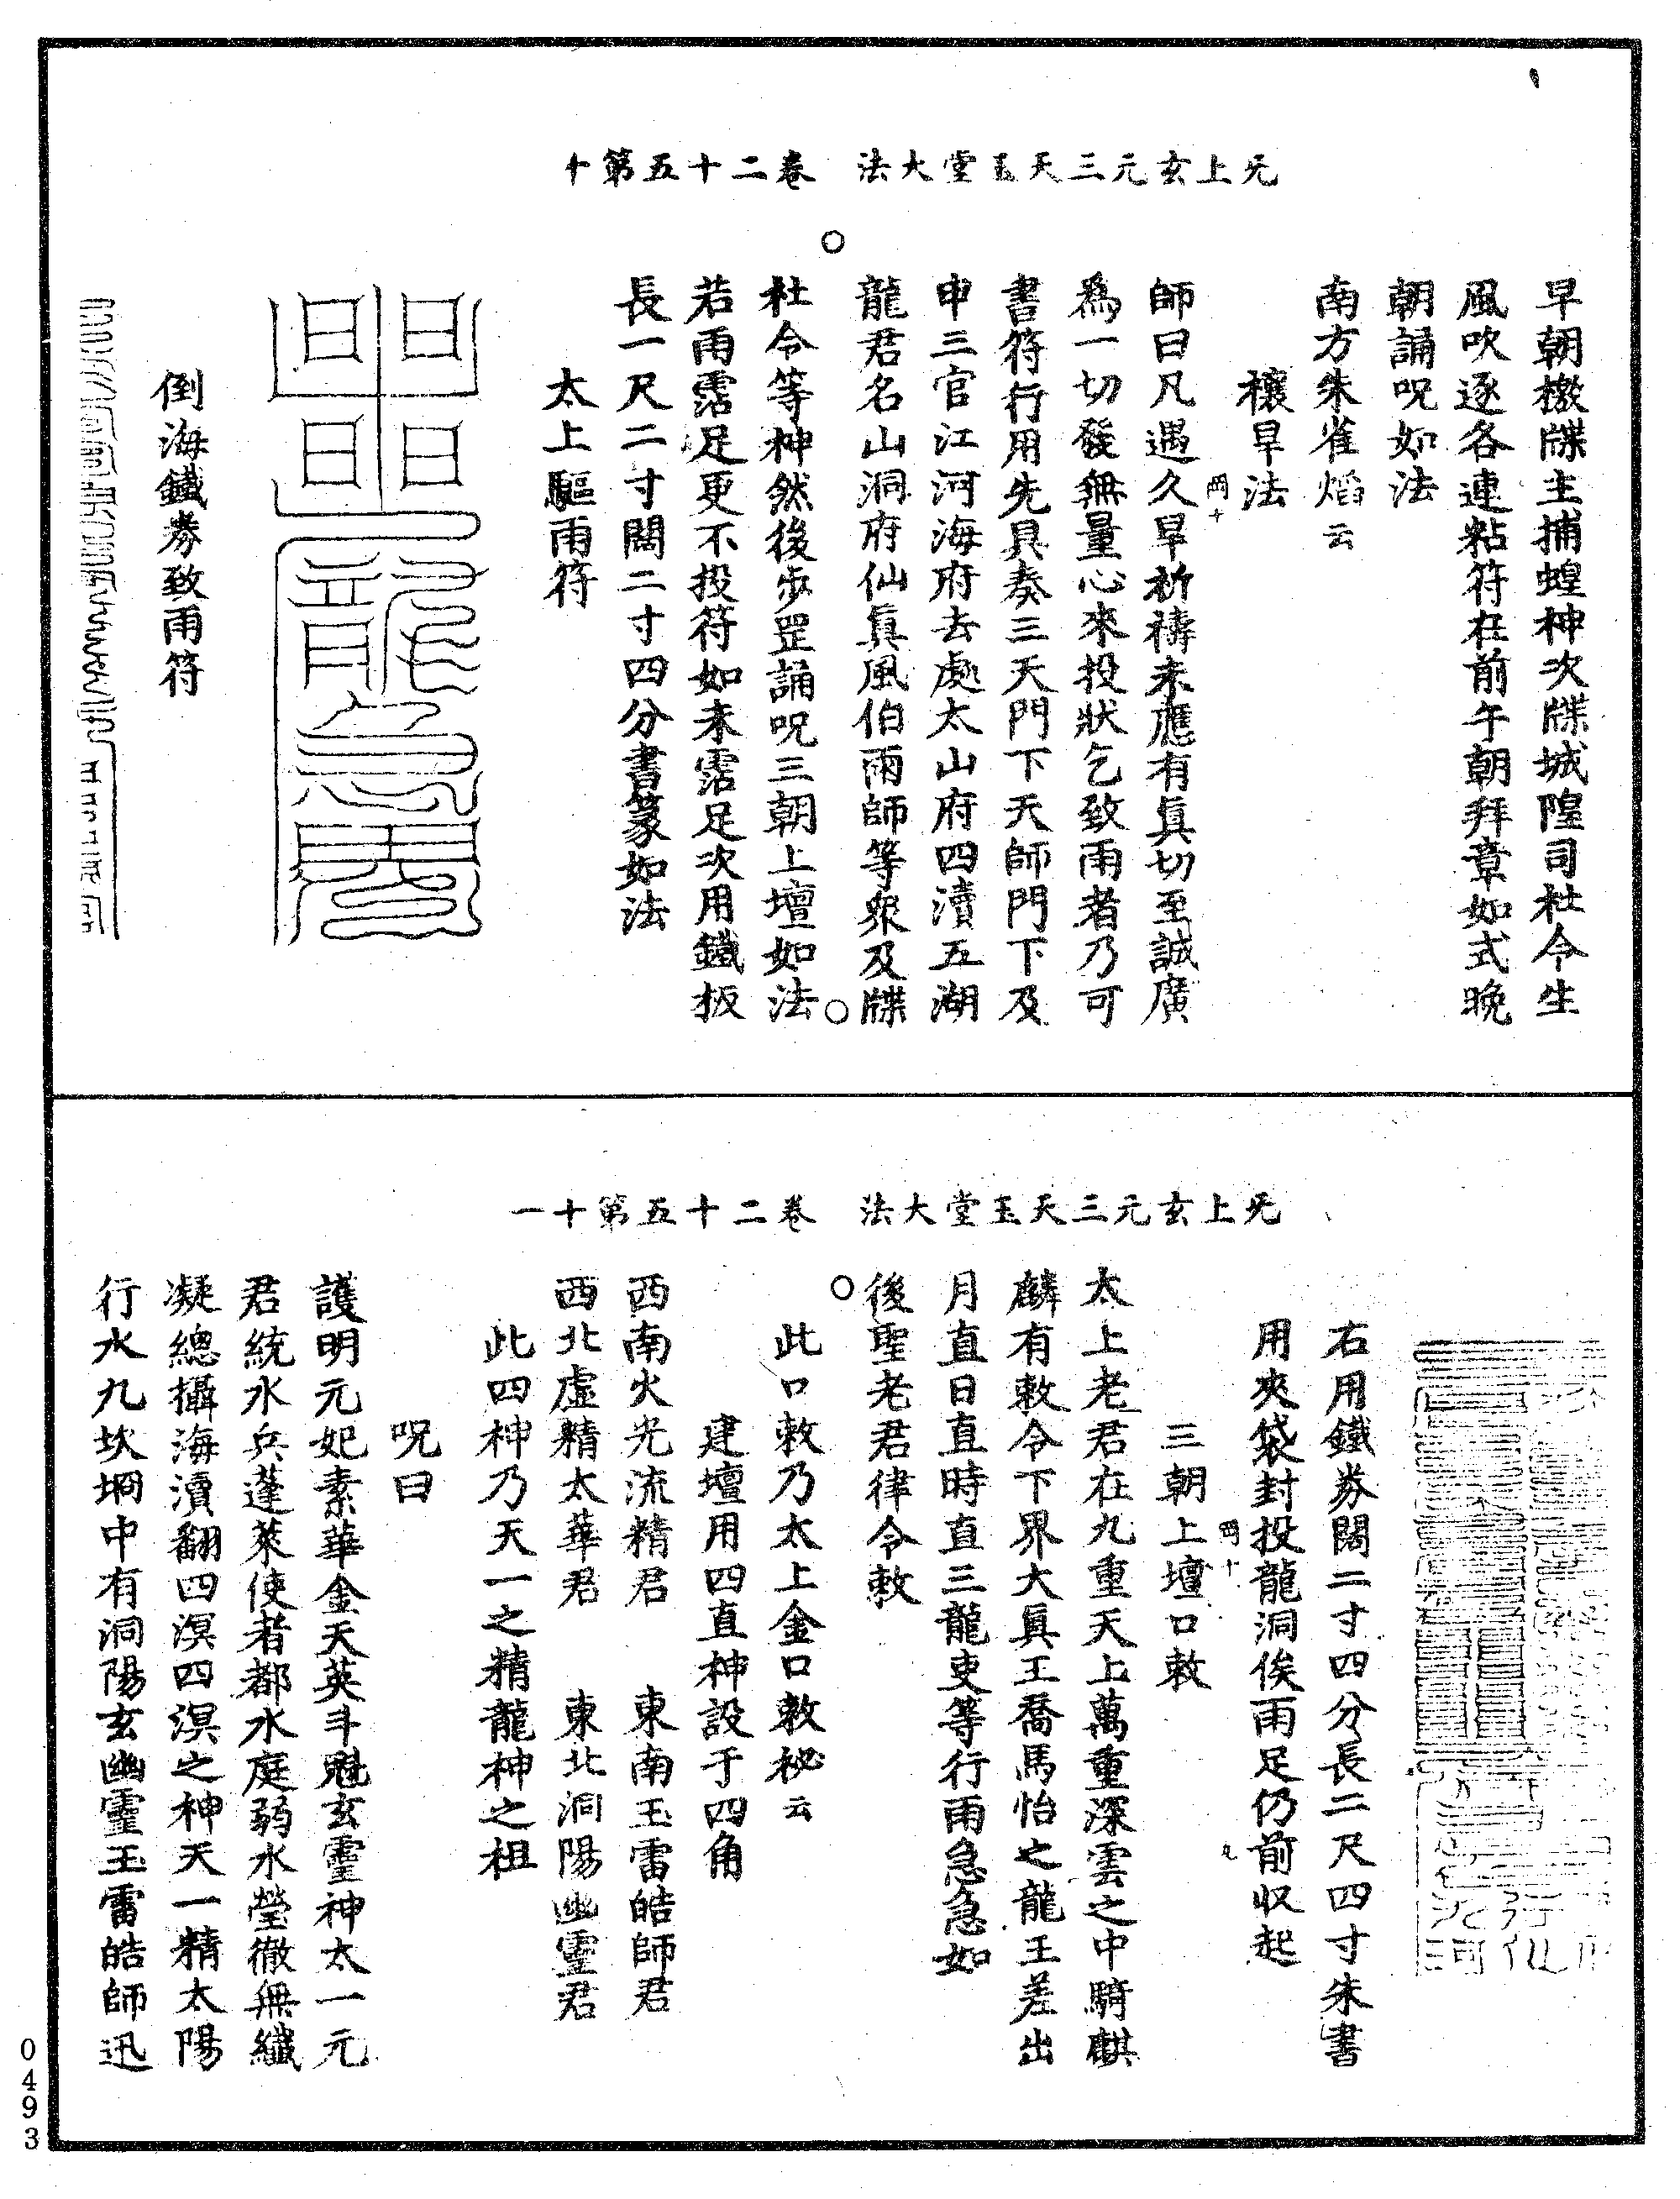 无上玄元三天玉堂大法 卷二十五第十
早朝檄牒主捕蝗神次牒城隍司社令生
風吹逐各連粘符在前午朝拜章如式晚
朝誦呪如法
南方朱雀熖云
禳旱法
師曰凡遇久旱祈禱未應有眞切至誠廣
爲一切發無量心來投狀乞致雨者乃可
書符行用先具奏三天門下天師門下及
申三官江河海府去處太山府四瀆五湖
龍君名山洞府仙眞風伯雨師等衆及牒
社令等神然後步罡誦呪三朝上壇如法
若雨霑足更不投符如未霑足次用鐵板
長一尺二寸闊二寸四分書篆如法
太上驅雨符
倒海鐵券致雨符
无上玄元三天玉堂大法 卷二十五第十一
右用鐵券闊二寸四分長二尺四寸朱書
用夾袋封投龍洞俟雨足仍前収起
三朝上壇口敕
太上老君在九重天上萬重深雲之中騎麒
麟有敕令下界大眞王喬馬怡之龍王差出
月直日直時直三龍吏等行雨急急如
後聖老君律令敕
此口敕乃太上金口敕祕云
建壇用四直神設于四角
西南火光流精君 東南玉雷皓師君
西北虛精太華君 東北洞陽幽靈君
此四神乃天一之精龍神之祖
呪曰
護明元妃素華金天英斗魁玄靈神太一元
君統水兵蓬萊使者都水庭弱水瑩徹無纖
凝總攝海瀆翻四溟四溟之神天一精太陽
行水九坎坰中有洞陽玄幽靈玉雷皓師迅
0493